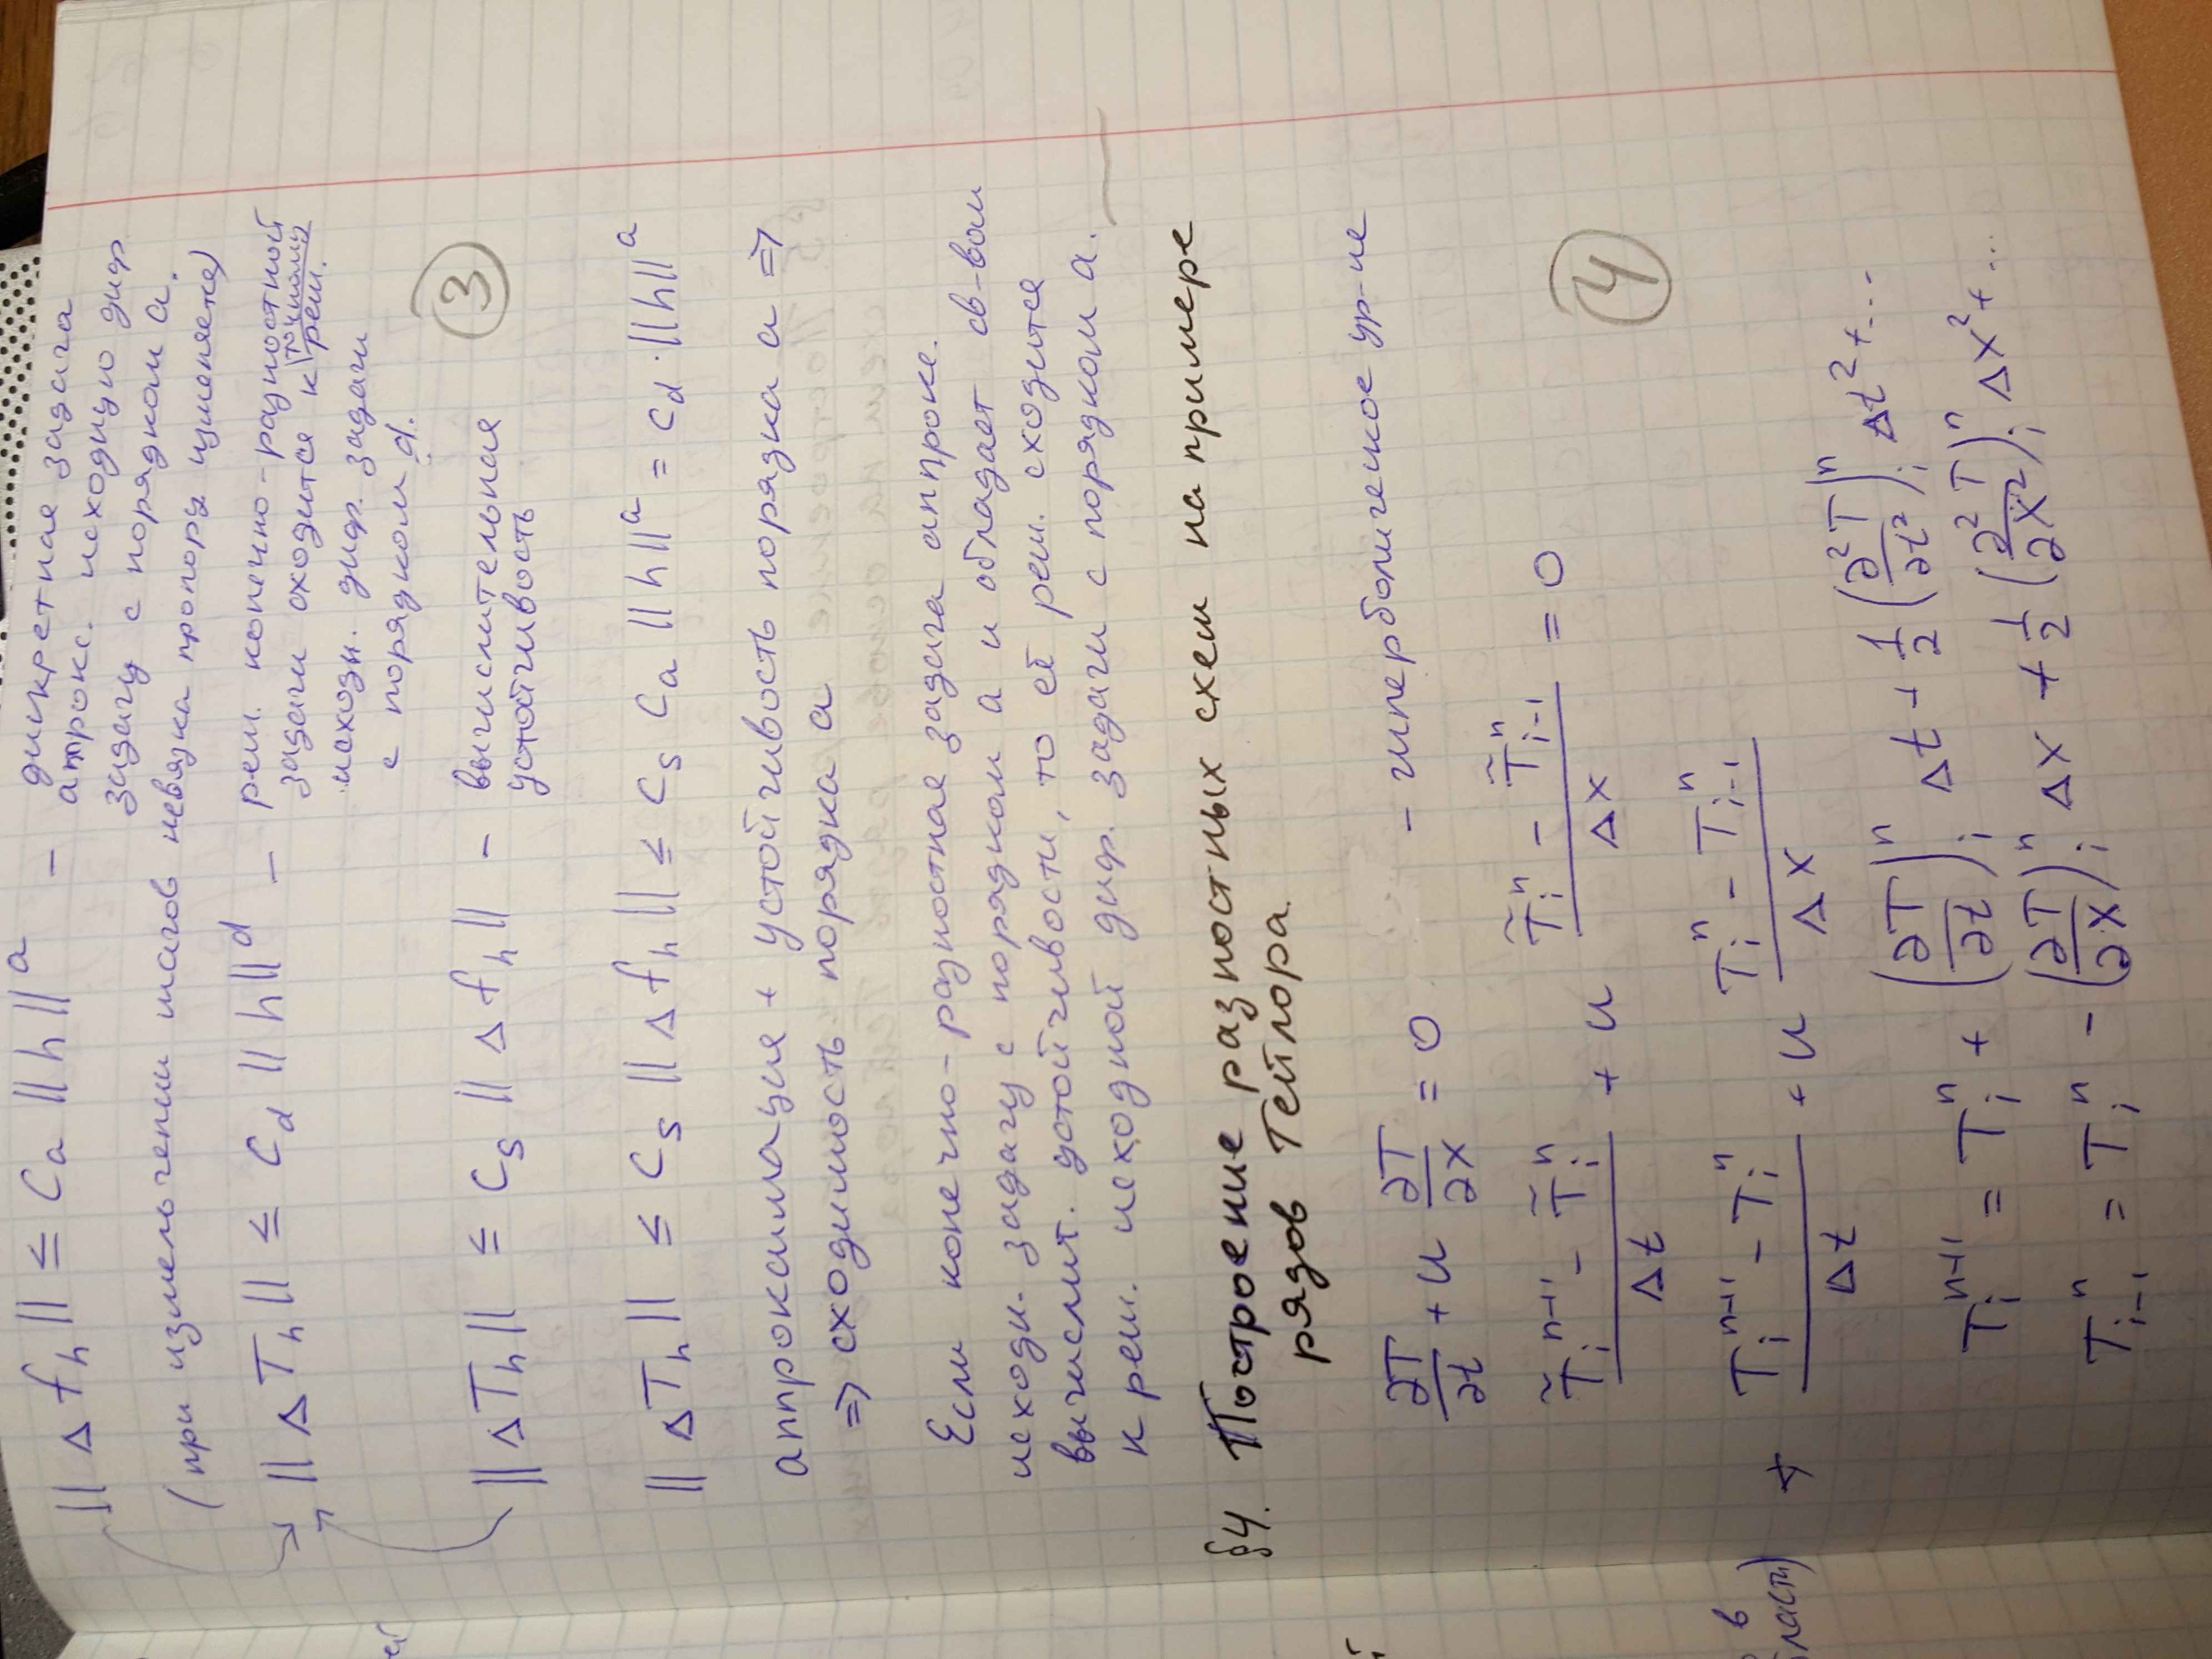 ||Δf_h|| ≤ C_a ||h||^a – дискретная задача
аппрокс. исходную диф.
задачу с порядком a.
(при измельчении шагов невязка пропорц. изменяется)
||ΔT_h|| ≤ C_d ||h||^d – реш. конечно-разностной
задачи сходится к точному реш.
исходн. диф. задачи
с порядком d.
3
||ΔT_h|| ≤ C_s ||Δf_h|| – вычислительная
устойчивость
||ΔT_h|| ≤ C_s ||Δf_h|| ≤ C_s C_a ||h||^a = C_d · ||h||^a
аппроксимация + устойчивость порядка a ⇒
⇒ сходимость порядка a
Если конечно-разностная задача аппрокс.
исходн. задачу с порядком a и обладает св-вом
вычислит. устойчивости, то её реш. сходится
к реш. исходной диф. задачи с порядком a.
§4. Построение разностных схем на примере
рядов Тейлора.
∂T/∂t + u ∂T/∂x = 0 – гиперболическое ур-ие
(T̃_i^{n+1} – T̃_i^n)/Δt + u (T̃_i^n – T̃_{i-1}^n)/Δx = 0
4
(T_i^{n+1} – T_i^n)/Δt + u (T_i^n – T_{i-1}^n)/Δx
T_i^{n+1} = T_i^n + (∂T/∂t)_i^n Δt + 1/2 (∂²T/∂t²)_i^n Δt² + ...
T_{i-1}^n = T_i^n – (∂T/∂x)_i^n Δx + 1/2 (∂²T/∂x²)_i^n Δx² + ...